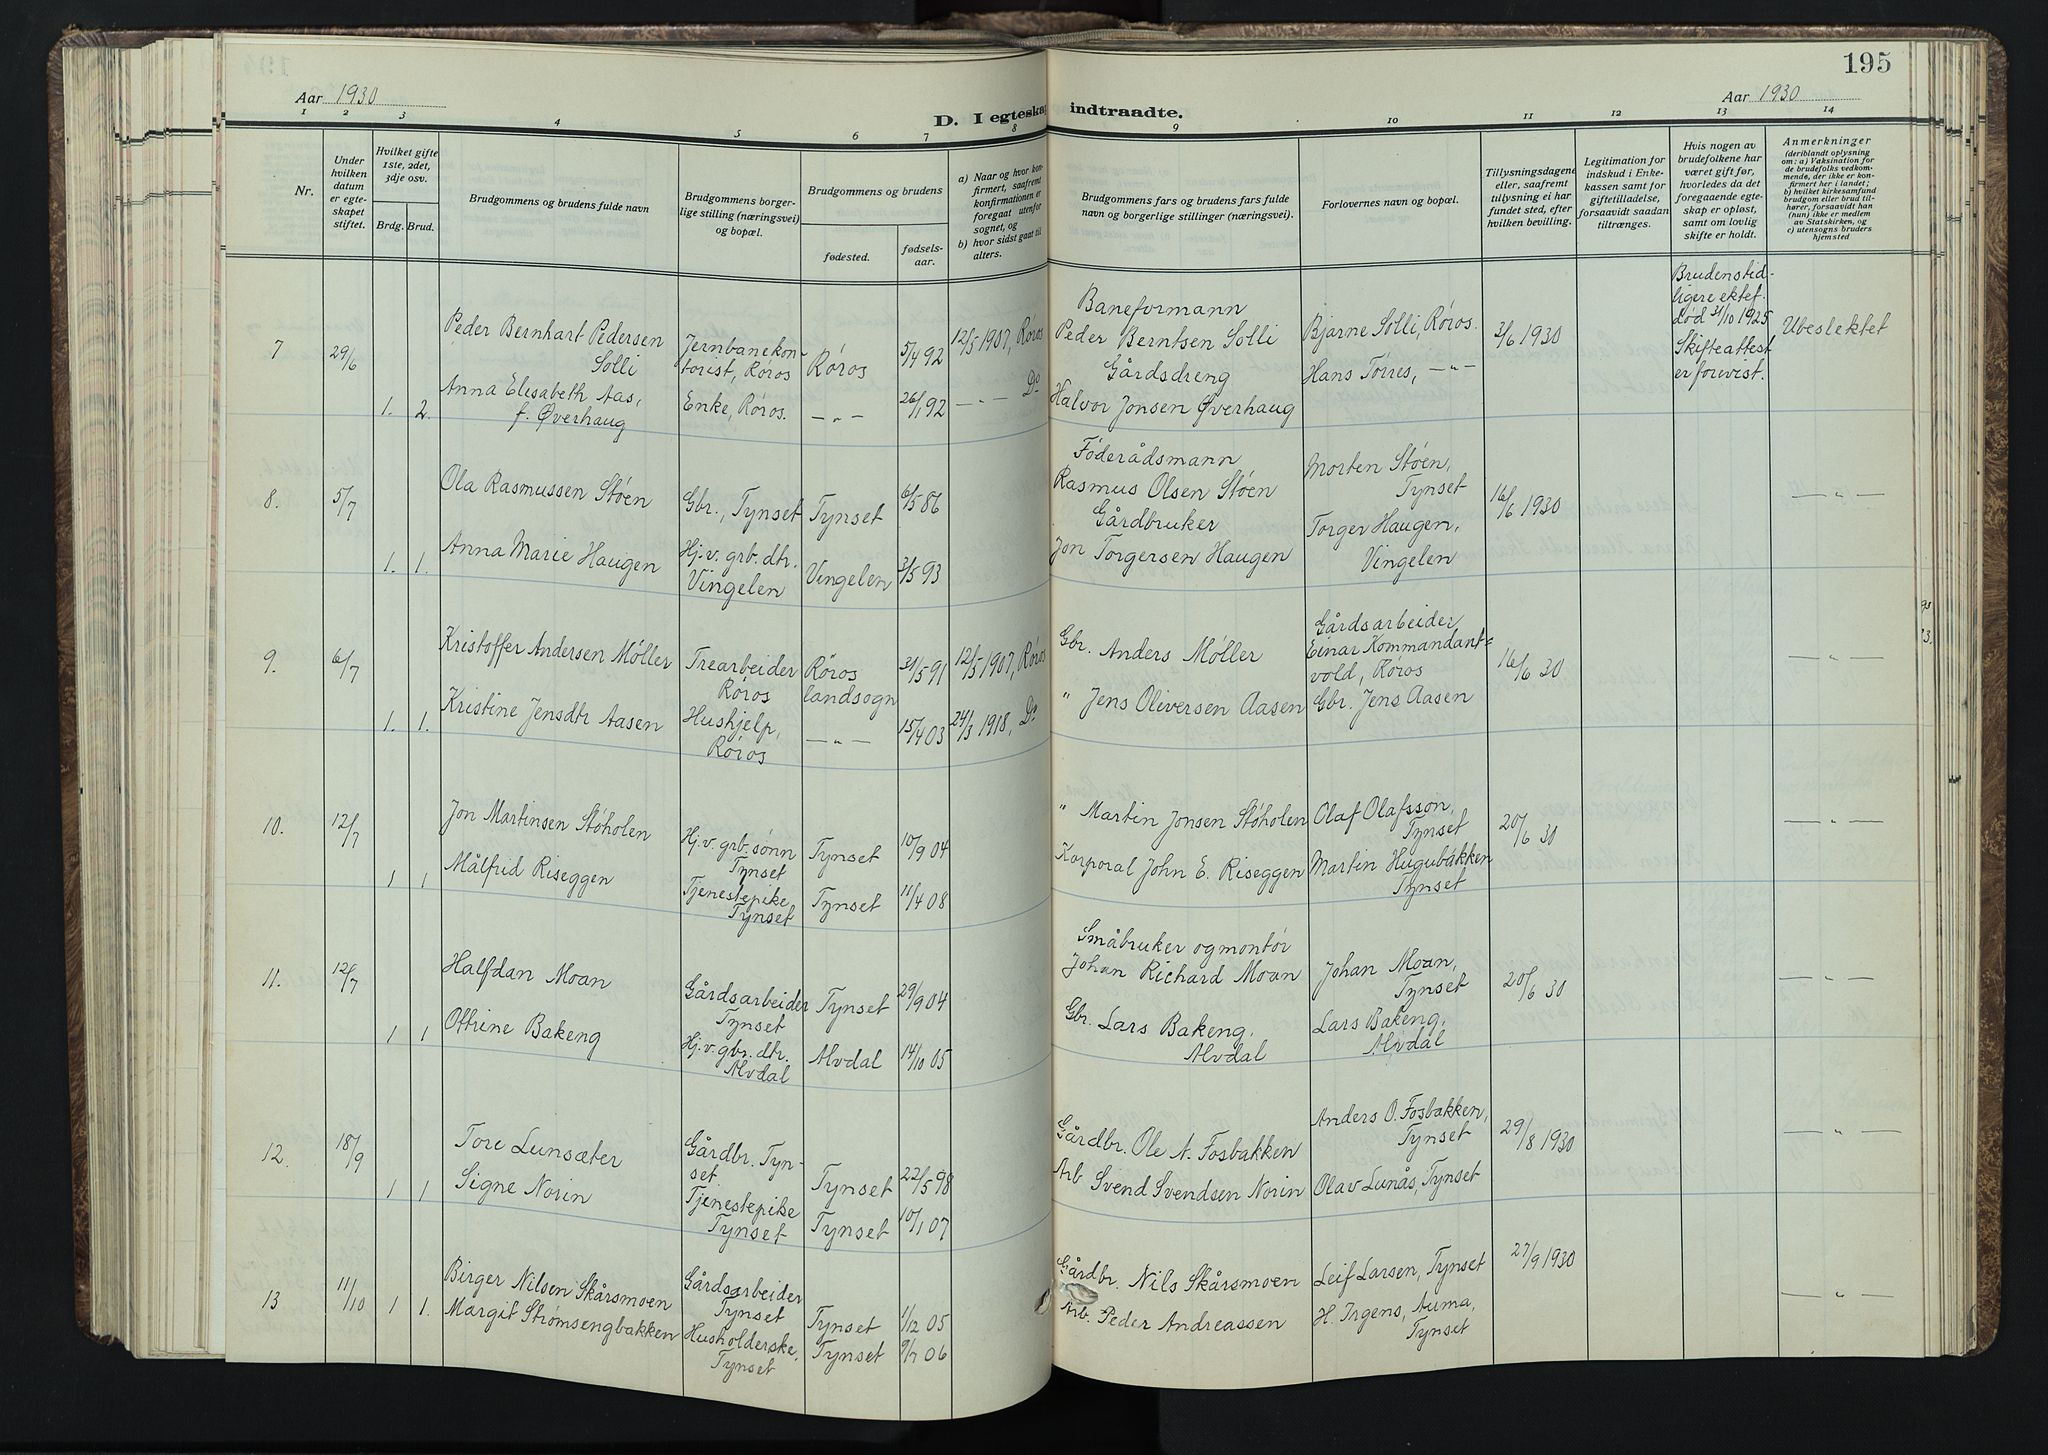 195
Aar 1930
Aar 1930
D. I egteska
indtraadte.
1 2 3 4 5 6 7 8 9 10 11 12 13 14
Nr.
Under hvilken datum er egteskapet stiftet.
Hvilket gifte 1ste, 2det, 3dje osv.
Brdg. Brud.
Brudgommens og brudens fulde navn
Brudgommens borgerlige stilling (næringsvei) og bopæl.
Brudgommens og brudens
fødested.
fødselsaar.
a) Naar og hvor konfirmert, saafremt konfirmationen er foregaat utenfor sognet, og
b) hvor sidst gaat til alters.
Brudgommens fars og brudens fars fulde navn og borgerlige stillinger (næringsvei).
Forlovernes navn og bopæl.
Tillysningsdagene eller, saafremt tillysning ei har fundet sted, efter hvilken bevilling.
Legitimation for indskud i Enkekassen samt for giftetilladelse, forsaavidt saadan tiltrænges.
Hvis nogen av brudefolkene har været gift før, hvorledes da det foregaaende egteskap er opløst, samt om lovlig skifte er holdt.
Anmerkninger
(deriblandt oplysning om: a) Vaksination for de brudefolks vedkommende, der ikke er konfirmert her i landet; b) hvilket kirkesamfund brudgom eller brud tilhører, forsaavidt han (hun) ikke er medlem av Statskirken, c) utensogns bruders hjemsted
7
29/6
1. 2.
Peder Bernhart Pedersen
Solli
Anna Elisabeth Aas,
f. Øverhaug
Jernbanekon-
torist, Røros
Enke, Røros.
Røros
— „ —
5/4 92
26/1 92
12/5 1907, Røros
— „ — Do
Baneformann
Peder Berntsen Solli
Gårdsdreng
Halvor Jonsen Øverhaug
Bjarne Solli, Røros.
Hans Tørres, — „ —
2/6 1930
Brudens tid-
ligere ektef.
død 31/10 1925
Skifteattest
er forevist.
Ubeslektet
8.
5/7
1. 1.
Ola Rasmussen Støen
Anna Marie Haugen
Gbr., Tynset
Hj.v. grb. dtr.
Vingelen
Tynset
Vingelen
6/5 86
3/5 93
Føderådsmann
Rasmus Olsen Støen
Gårdbruker
Jon Torgersen Haugen
Morten Støen,
Tynset
Torger Haugen,
Vingelen
16/6 1930
— „ —
9.
6/7
1. 1.
Kristoffer Andersen Møller
Kristine Jensdtr Aasen
Trearbeider
Røros
Hushjelp,
Røros
Røros
landsogn
— „ —
31/5 91
15/4 03
12/5 1907, Røros
24/3 1918, Do
Gbr. Anders Møller
" Jens Oliversen Aasen
Gårdsarbeider
Einar Kommandant=
vold, Røros
Gbr. Jens Aasen
16/6 30
— „ —
10.
12/7
1 1
Jon Martinsen Støholen
Målfrid Riseggen
Hj.v. grb. sønn
Tynset
Tjenestepike,
Tynset
Tynset
Tynset
10/9 04
11/4 08
" Martin Jonsen Støholen
Korporal John E. Riseggen
Olaf Olafsson,
Tynset
Martin Hugubakken
Tynset
20/6 30
— „ —
11.
12/7
1 1
Halfdan Moan
Ottrine Bakeng
Gårdsarbeider
Tynset
Hj.v. gbr. dtr.
Alvdal
Tynset
Alvdal
29/9 04
14/10 05
Småbruker og montør
Johan Richard Moan
Gbr. Lars Bakeng,
Alvdal
Johan Moan,
Tynset
Lars Bakeng,
Alvdal
20/6 30
— „ —
12.
18/9
1 1
Tore Lunsæter
Signe Norin
Gårdbr. Tyn-
set
Tjenestepike
Tynset
Tynset
Tynset
22/5 98
10/1 07
Gårdbr. Ole A. Fosbakken
Arb Svend Svendsen Norin
Anders O. Fosbakken,
Tynset
Olav Lunås, Tynset
29/8 1930
— „ —
13
11/10
1 1.
Birger Nilsen Skårsmoen
Margit Strømsengbakken
Gårdsarbeider
Tynset
Husholderske,
Tynset
Tynset
Tynset
1/12 05
9/7 06
Gårdbr. Nils Skårsmoen
Arb. Peder Andreassen
Leif Larsen, Tynset
H. Irgens, Auma,
Tynset
27/9 1930
— „ —